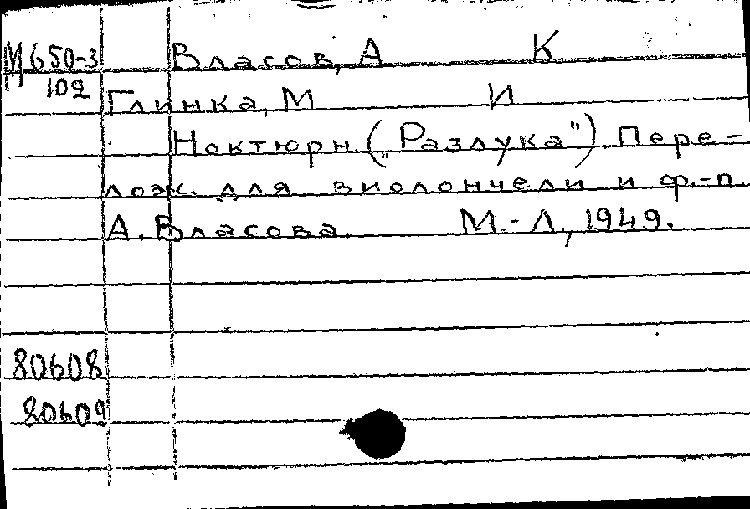 М650-3 Власов, А К
102
Глинка, М И
Ноктюрн („Разлука"). Пере-
лож. для виолончели и ф.-п.
А. Власова. М.-Л., 1949.
80608
80609